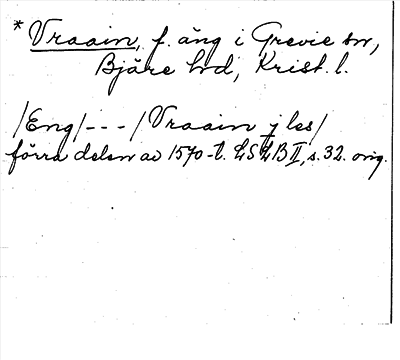 * Vraain, f. äng i Grevie sn,
Bjäre hd, Krist. l.
/Eng/---/Vraain j les/
förra delen av 1570-t. LSLB II, s. 32. orig.